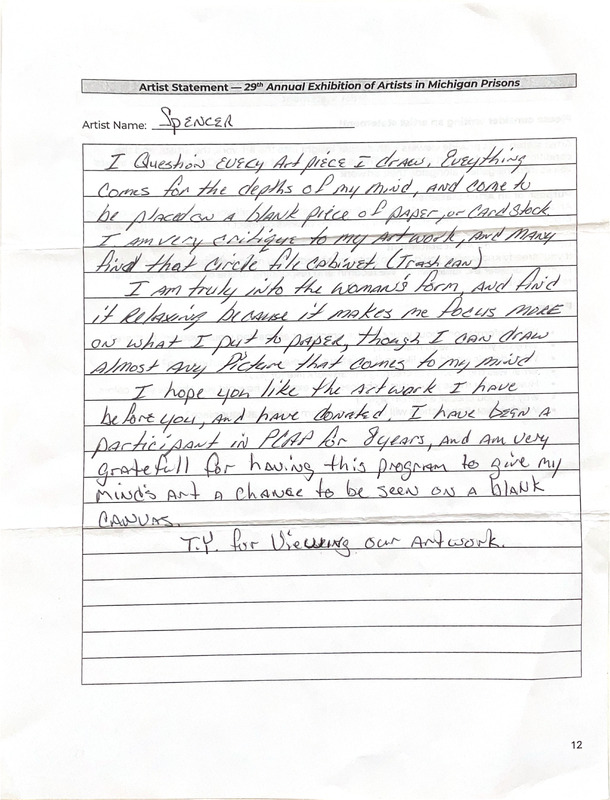 Artist Statement — 29th Annual Exhibition of Artists in Michigan Prisons
Artist Name: SPENCER
I Question EVERY Art piece I draw. Eveything
comes for the depths of my mind, and come to
be placed on a blank piece of paper, or Cardstock.
I am very critique to my Artwork, and MANY
find that circle file cabinet. (Trash can)
I am truly into the woman's form, and find
it Relaxing because it makes me focus MORE
on what I put to paper, though I can draw
Almost Any Picture that comes to my mind
I hope you like the Artwork I have
before you, and have donated. I have been a
participant in PCAP for 8 years, and am very
gratefull for having this program to give my
mind's Art a chance to be seen on a blank
CANVAS.
T.Y. for Viewing our Artwork.
12